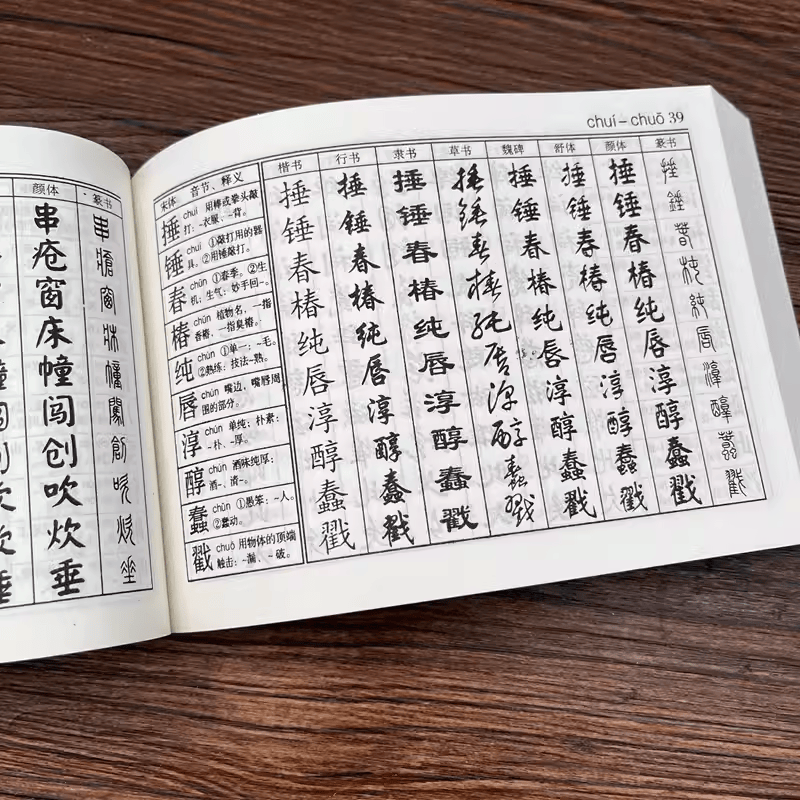 颜体 篆书
串 串
疮 疮
窗 窗
床 床
幢 幢
闯 闖
创 創
吹 吹
炊 炊
垂 垂
chuí – chuō 39
宋体 音节、释义 楷书 行书 隶书 草书 魏碑 舒体 颜体 篆书
捶 chuí 用棒或拳头敲打:~衣服、~背。 捶 捶 捶 捶 捶 捶 捶 捶
锤 chuí ①敲打用的器具。②用锤敲打。 锤 锤 锤 锤 锤 锤 锤 錘
春 chūn ①春季。②生机;生气:妙手回~。 春 春 春 春 春 春 春 春
椿 chūn 植物名,一指香椿,一指臭椿。 椿 椿 椿 椿 椿 椿 椿 椿
纯 chún ①单一:~毛。②熟练:技法~熟。 纯 纯 纯 纯 纯 纯 纯 純
唇 chún 嘴边、嘴唇周围的部分。 唇 唇 唇 唇 唇 唇 唇 唇
淳 chún 单纯;朴素:~朴、~厚。 淳 淳 淳 淳 淳 淳 淳 淳
醇 chún 酒味纯厚:酒~、清~。 醇 醇 醇 醇 醇 醇 醇 醇
蠢 chǔn ①愚笨:~人。②蠢动。 蠢 蠢 蠢 蠢 蠢 蠢 蠢 蠢
戳 chuō 用物体的顶端触击:~漏、~破。 戳 戳 戳 戳 戳 戳 戳 戳